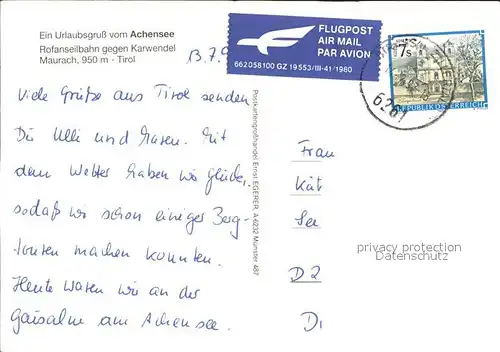 Ein Urlaubsgruß vom Achensee
Rofanseilbahn gegen Karwendel
Maurach, 950 m - Tirol
13.7.9
FLUGPOST
AIR MAIL
PAR AVION
662 058 100 GZ 19 553/III-41/1980
7s
REPUBLIK ÖSTERREICH
6261
Viele Grüße aus Tirol senden
Dir Ulli und Maren. Mit
dem Wetter haben wir Glück,
sodaß wir schon einige Berg-
touren machen konnten.
Heute waren wir an der
Gaisalme am Achensee.
Postkartengroßhandel Ernst EGERER, A-6232 Münster 487
Frau
Kät
See
D2
Di
privacy protection
Datenschutz